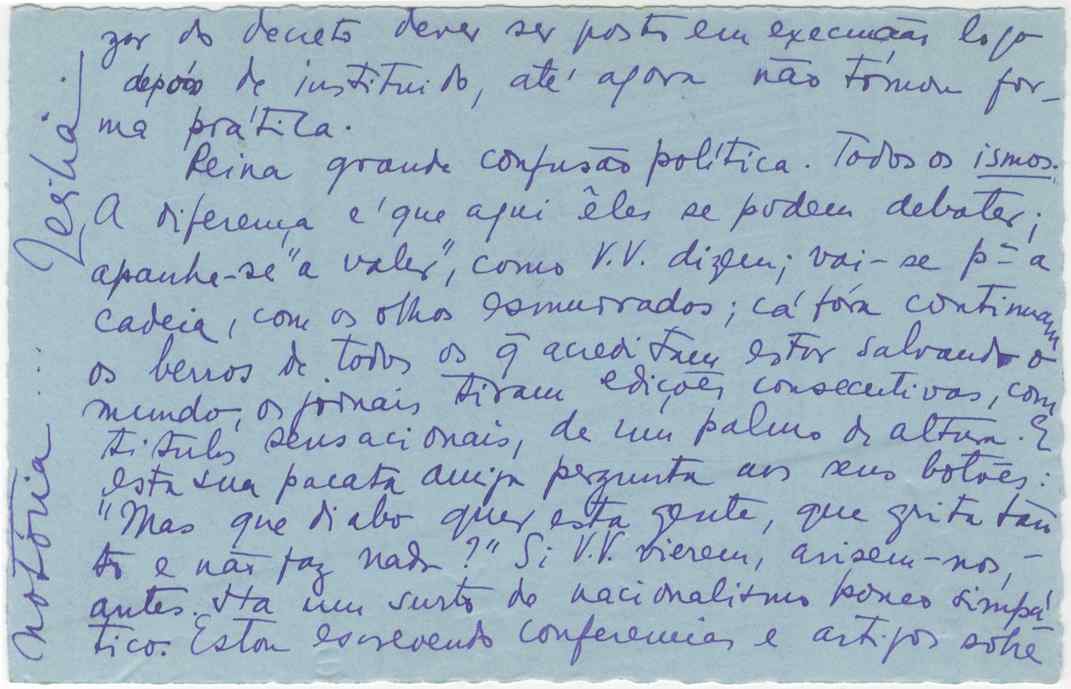 zar do decreto dever ser posto em execução logo
depois de instituido, até agora não tomou for-
ma prática.
Reina grande confusão política. Todos os ismos.
A diferença é que aqui êles se podem debater;
apanha-se "a valer", como V.V. dizem; vai-se pª a
cadeia, com os olhos esmurrados; cá fóra continuam
os berros de todos os q̄ acreditam estar salvando o
mundo, os jornais tiram edições consecutivas, com
titulos sensacionais, de um palmo de altura. E
esta sua pacata amiga pergunta aos seus botões:
"Mas que diabo quer esta gente, que grita tan-
to e não faz nada?" Si V.V. vierem, avisem-nos,
antes. Ha um surto de nacionalismo pouco simpá-
tico. Estou escrevendo conferencias e artigos sobre
notória ...